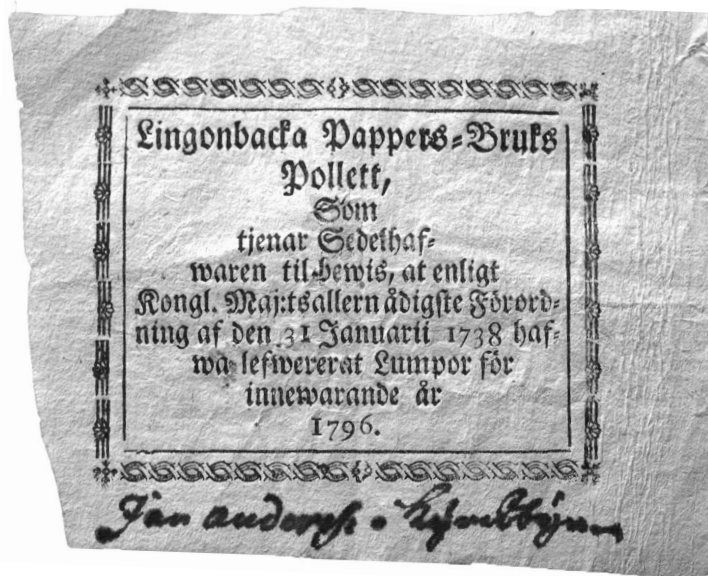 Lingonbacka Pappers-Bruks
Pollett,
Som
tjenar Sedelhaf-
waren til bewis, at enligt
Kongl. Maj:ts allernådigste Förord-
ning af den 31 Januarii 1738 haf-
wa lefwererat Lumpor för
innewarande år
1796.
Jan